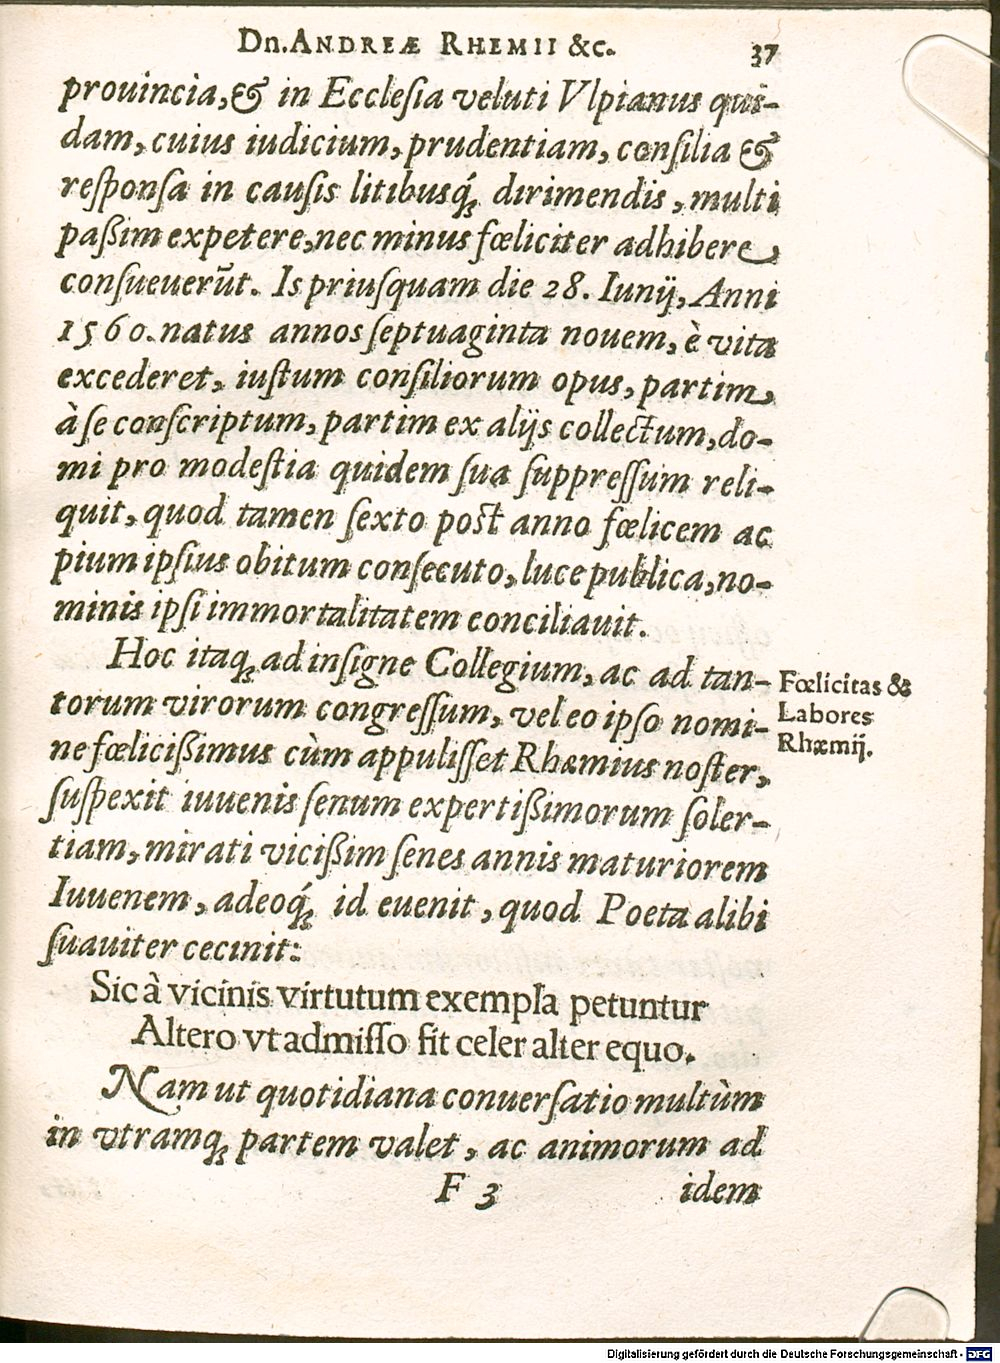 Dn. ANDREÆ RHEMII &c. 37
prouincia, & in Ecclesia veluti Vlpianus qui-
dam, cuius iudicium, prudentiam, consilia &
responsa in causis litibusq́; dirimendis, multi
paßim expetere, nec minus fœliciter adhibere,
consueuerũt. Is priusquam die 28. Iunij, Anni
1560. natus annos septuaginta nouem, è vita
excederet, iustum consiliorum opus, partim,
à se conscriptum, partim ex alijs collectum, do-
mi pro modestia quidem sua suppressum reli-
quit, quod tamen sexto post anno fœlicem ac
pium ipsius obitum consecuto, luce publica, no-
minis ipsi immortalitatem conciliauit.
Hoc itaq; ad insigne Collegium, ac ad tan-
torum virorum congressum, vel eo ipso nomi-
ne fœlicißimus cùm appulisset Rhæmius noster,
suspexit iuuenis senum expertißimorum soler-
tiam, mirati vicißim senes annis maturiorem
Iuuenem, adeoq́; id euenit, quod Poeta alibi
suauiter cecinit:
Sic à vicinis virtutum exempla petuntur
Altero vt admisso fit celer alter equo.
Nam ut quotidiana conuersatio multùm
in vtramq; partem valet, ac animorum ad
F 3 idem
Fœlicitas &
Labores
Rhæmij.
Digitalisierung gefördert durch die Deutsche Forschungsgemeinschaft - DFG